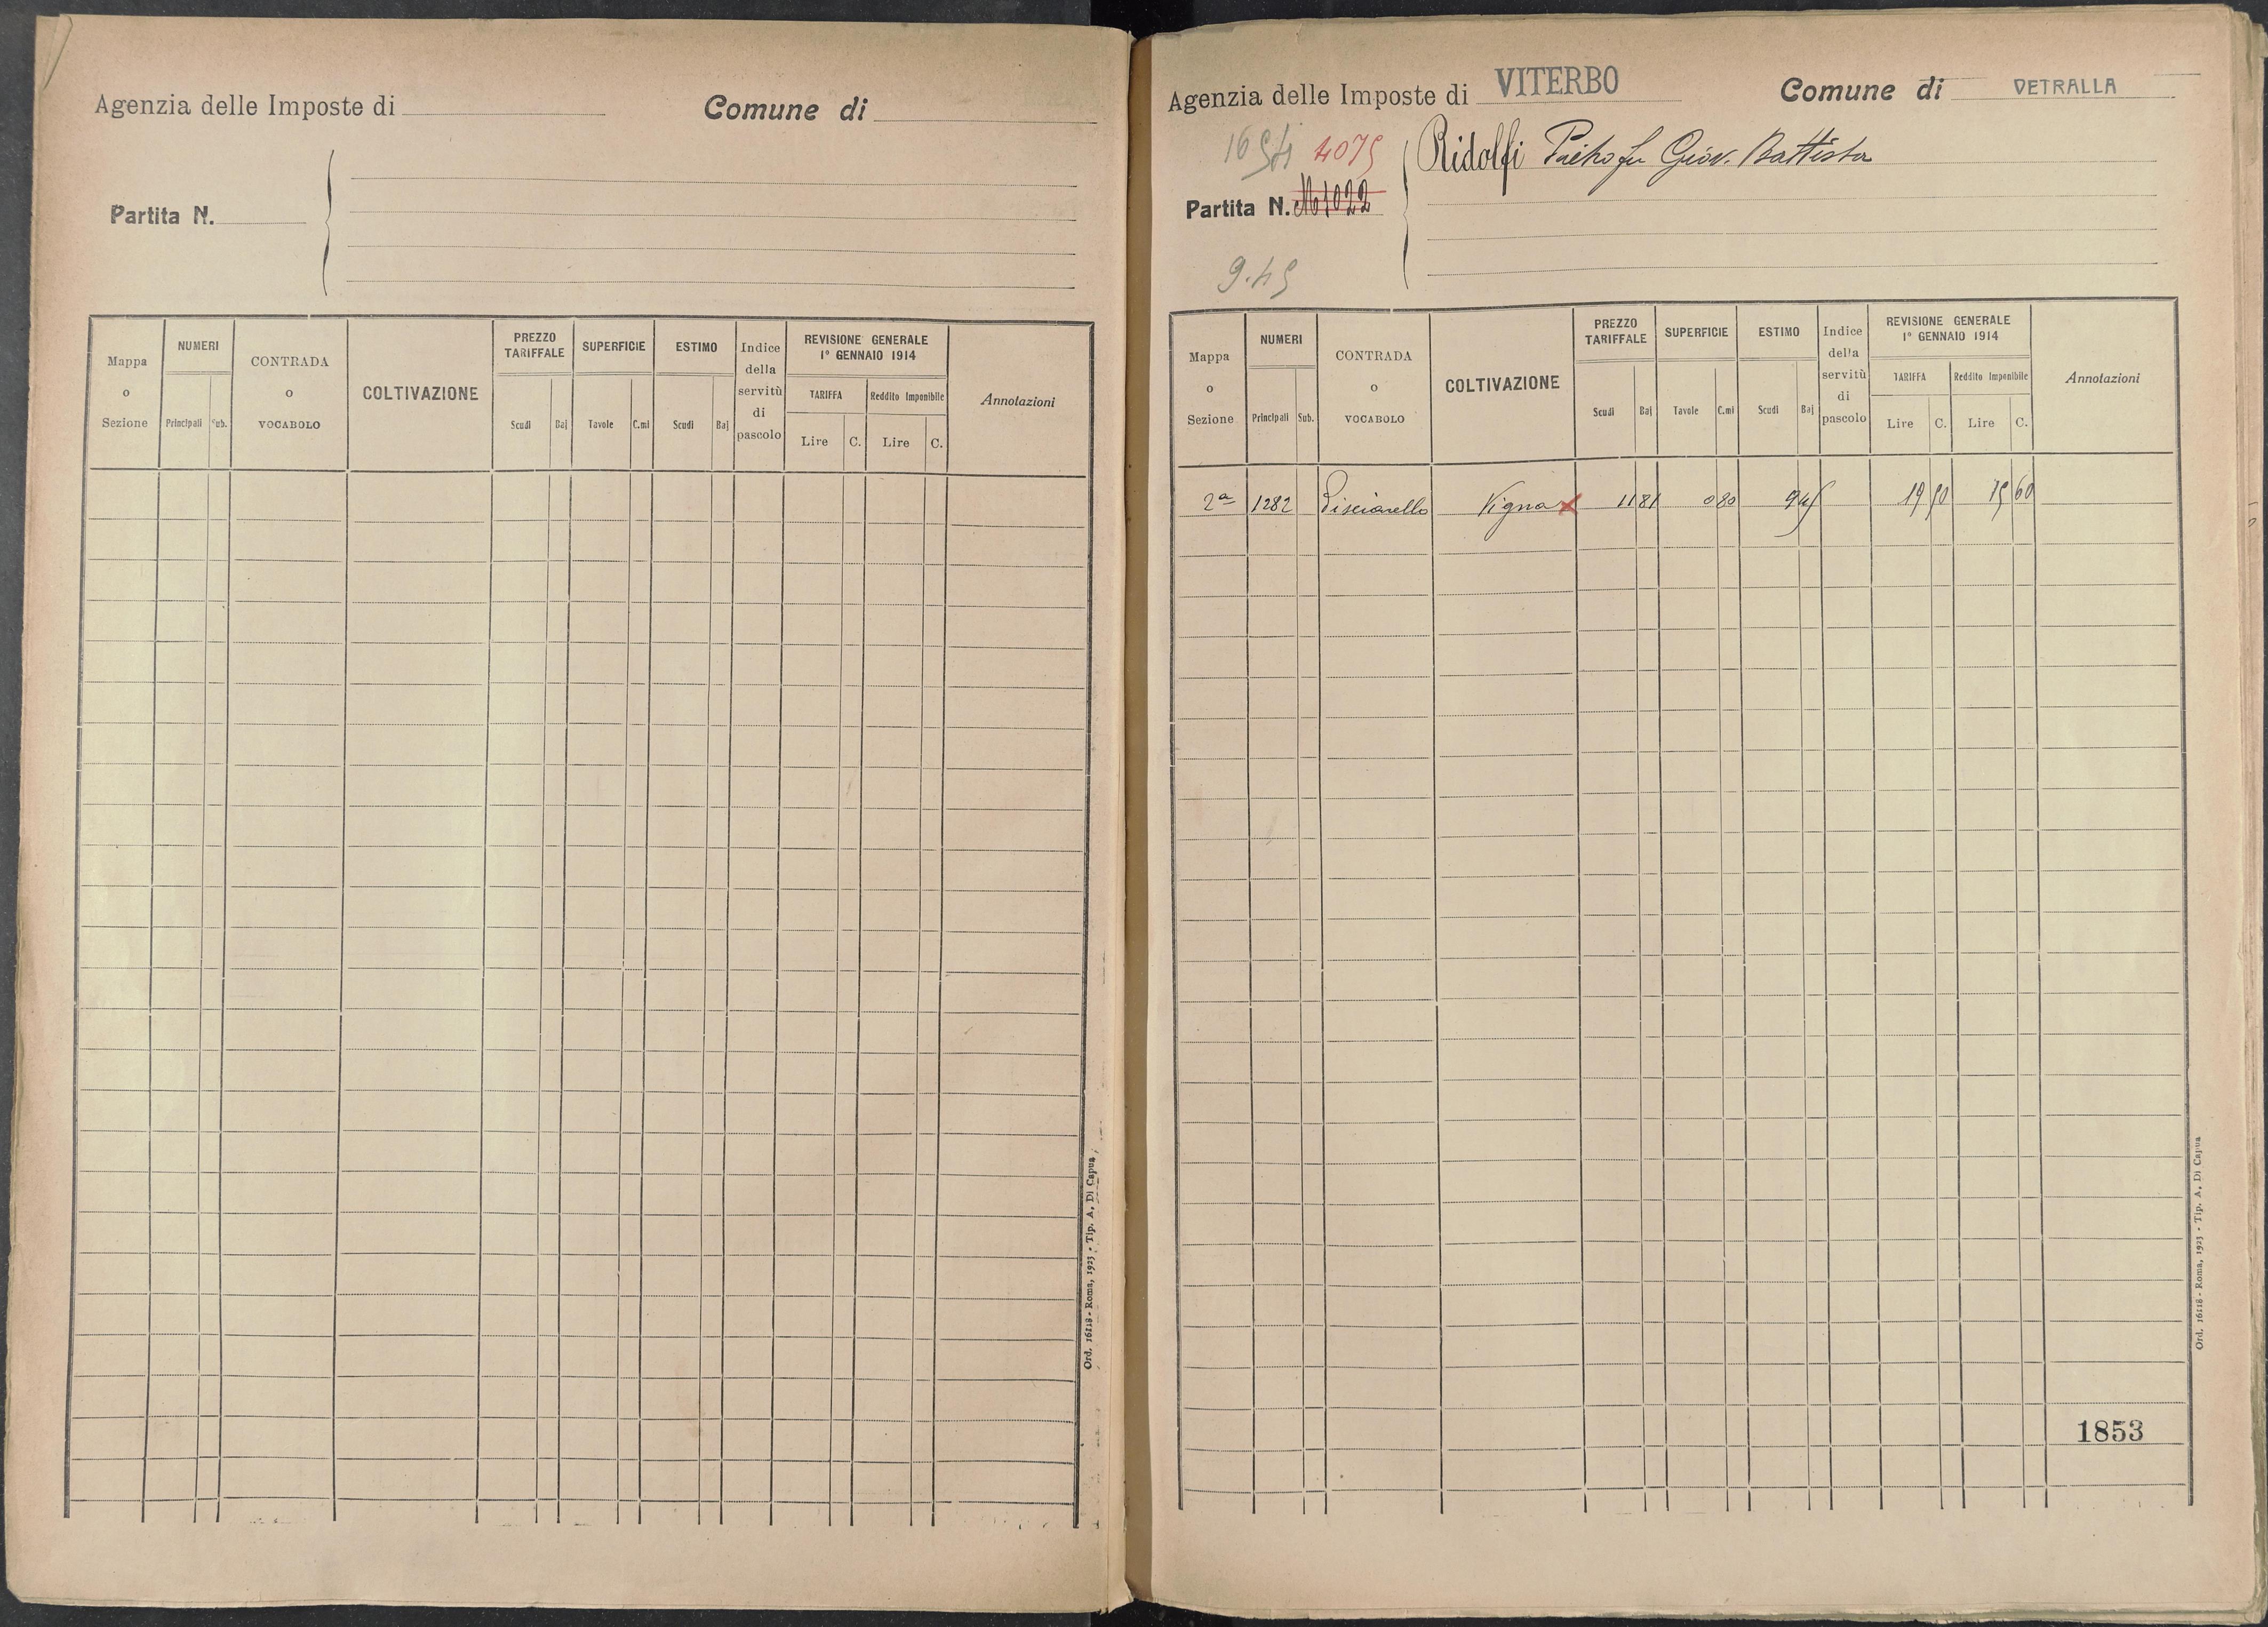 Agenzia delle Imposte di
Comune di
Partita N.
Mappa o Sezione
NUMERI
Principali
Sub.
CONTRADA o VOCABOLO
COLTIVAZIONE
PREZZO TARIFFALE
Scudi
Baj
SUPERFICIE
Tavole
C.mi
ESTIMO
Scudi
Baj
Indice della servitù di pascolo
REVISIONE GENERALE
1° GENNAIO 1914
TARIFFA
Reddito Imponibile
Lire
C.
Lire
C.
Annotazioni
Ord. 16118 - Roma, 1923 - Tip. A. Di Capua
Agenzia delle Imposte di VITERBO
Comune di VETRALLA
4075
Ridolfi Pietro fu Giov. Battista
Partita N.
9.45
Mappa o Sezione
NUMERI
Principali
Sub.
CONTRADA o VOCABOLO
COLTIVAZIONE
PREZZO TARIFFALE
Scudi
Baj
SUPERFICIE
Tavole
C.mi
ESTIMO
Scudi
Baj
Indice della servitù di pascolo
REVISIONE GENERALE
1° GENNAIO 1914
TARIFFA
Reddito Imponibile
Lire
C.
Lire
C.
Annotazioni
2a 1282 Pisciarello Vigna 11 81 0 80 9 45 19 50 15 60
1853
Ord. 16118 - Roma, 1923 - Tip. A. Di Capua